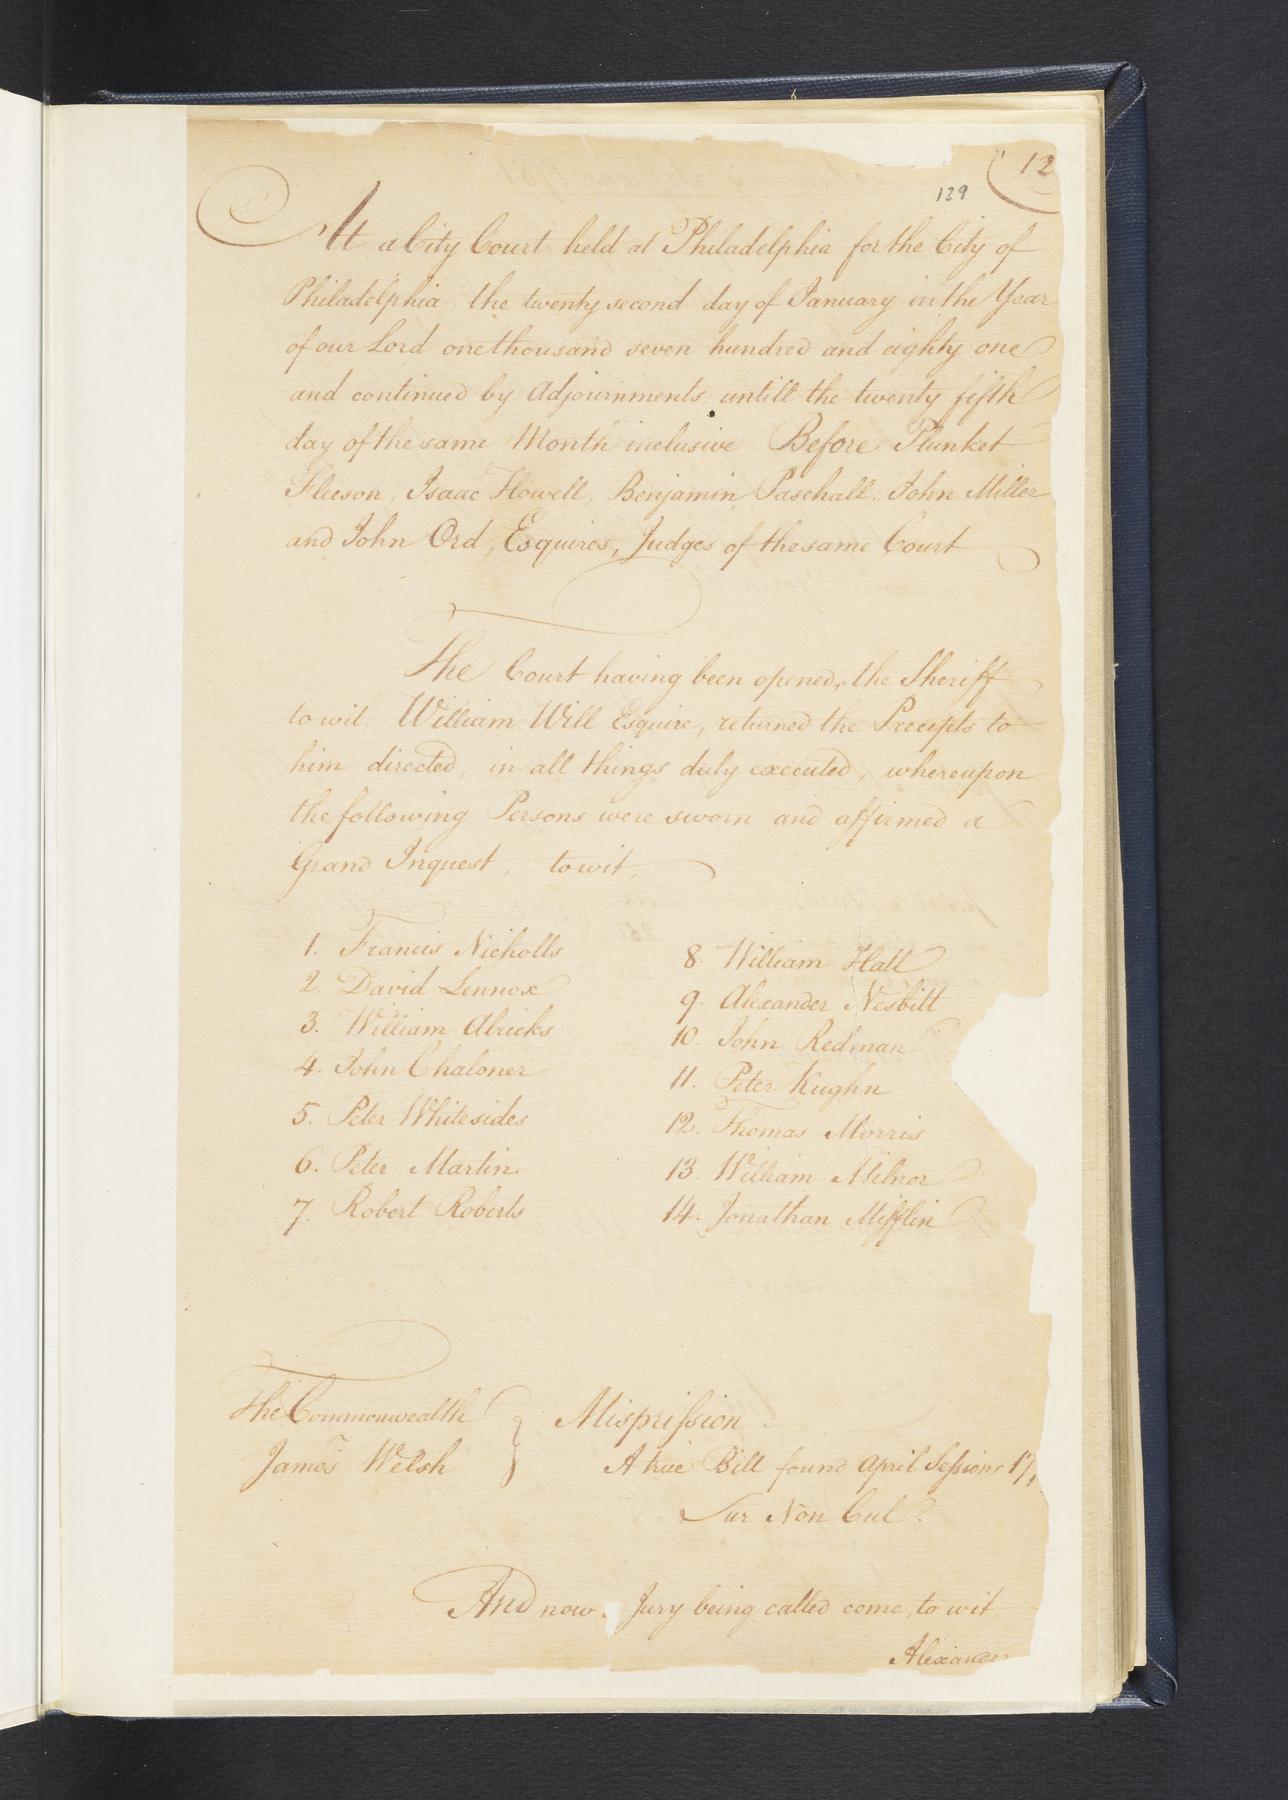 12
129
At a City Court held at Philadelphia for the City of
Philadelphia the twenty second day of January in the Year
of our Lord one thousand seven hundred and eighty one
and continued by Adjournments untill the twenty fifth
day of the same Month inclusive Before Plunket
Fleeson, Isaac Howell, Benjamin Paschall, John Miller
and John Ord, Esquires, Judges of the same Court
The Court having been opened, the Sheriff
to wit William Will Esquire, returned the Precepts to
him directed, in all things duly executed, whereupon
the following Persons were sworn and affirmed a
Grand Inquest, to wit,
1. Francis Nicholls
2. David Lennox
3. William Alricks
4. John Chaloner
5. Peter Whitesides
6. Peter Martin
7. Robert Roberts
8. William Hall
9. Alexander Nesbitt
10. John Redman
11. Peter Kughn
12. Thomas Morris
13. William Milnor
14. Jonathan Mifflin
The Commonwealth
James Welsh
Misprision
A true Bill found April Sessions 17
Sur Non Cul.
And now Jury being called come, to wit
Alexande